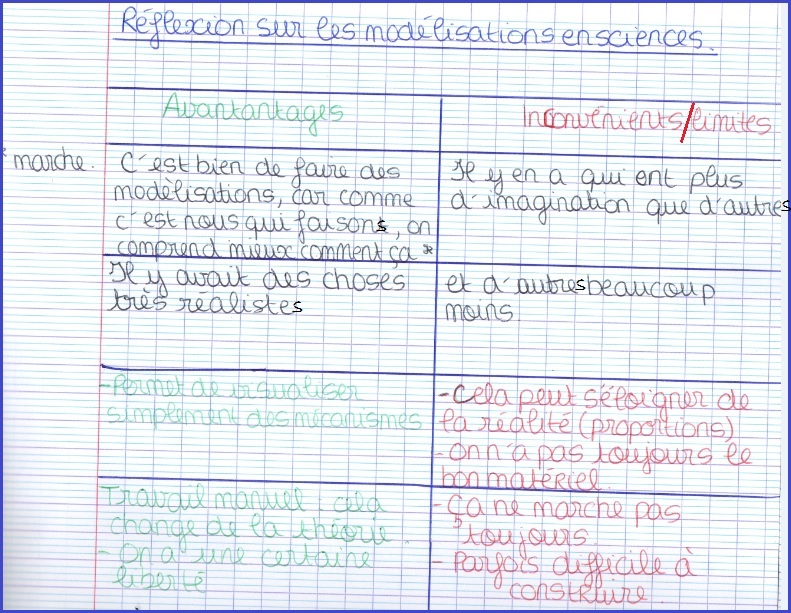 Réflexion sur les modélisations en sciences.
Avantantages
Inconvénients/limites
C'est bien de faire des
modèlisations, car comme
c'est nous qui faisons, on
comprend mieux comment ça *
* marche.
Il y en a qui ont plus
d'imagination que d'autres
Il y avait des choses
très réalistes
et d'autres beaucoup
moins.
-Permet de visualiser
simplement des mécanismes
-Cela peut s'éloigner de
la réalité (proportions)
-on n'a pas toujours le
bon matériel.
Travail manuel : cela
change de la théorie.
- On a une certaine
liberté
- Ça ne marche pas
toujours.
- Parfois difficile à
construire.